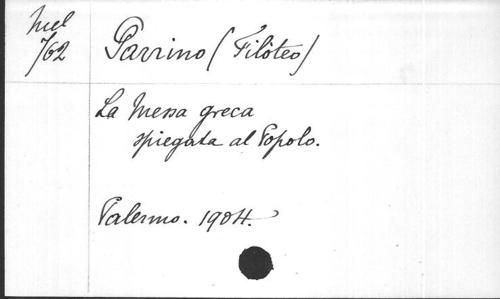 Mel
762
Parrino (Filóteo)
La Messa greca
spiegata al Popolo.
Palermo. 1904.